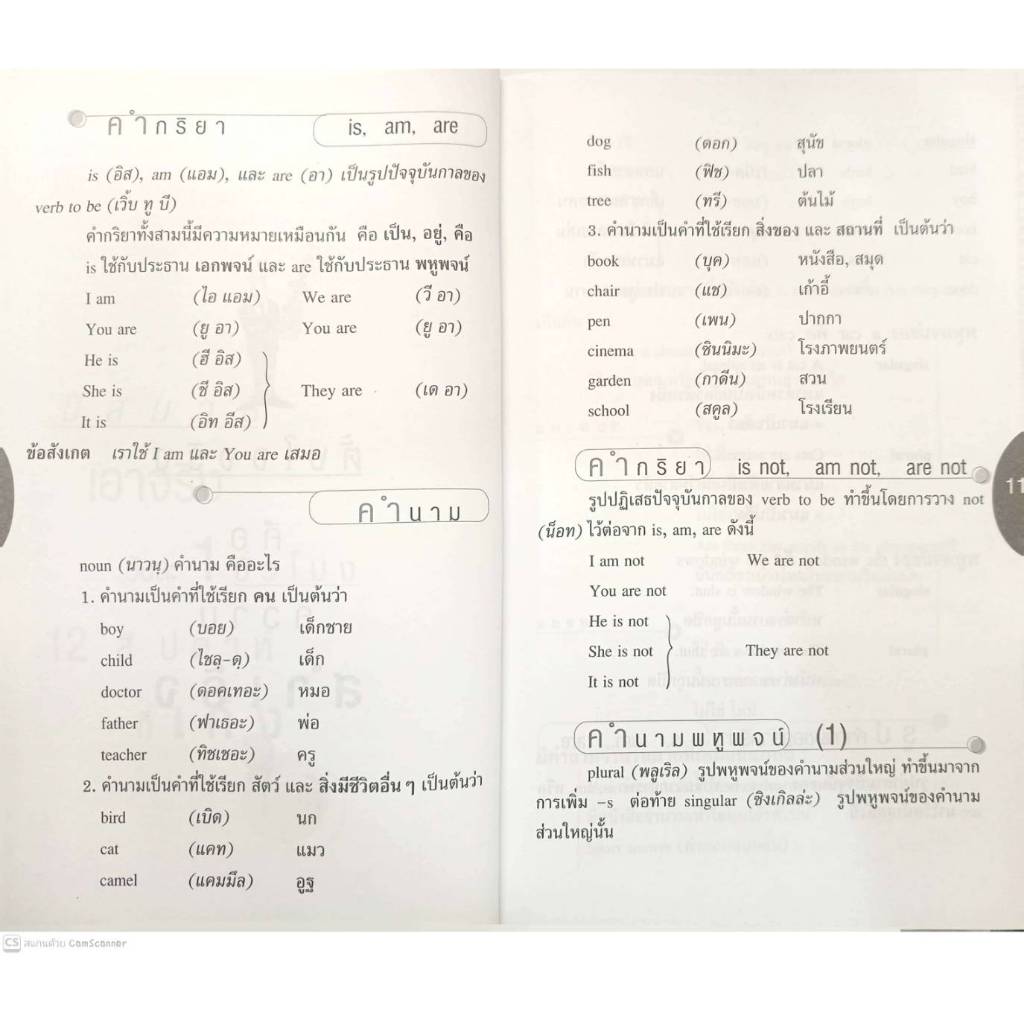 คำกริยา is, am, are
is (อิส), am (แอม), และ are (อา) เป็นรูปปัจจุบันกาลของ
verb to be (เวิ็บ ทู บี)
คำกริยาทั้งสามนี้มีความหมายเหมือนกัน คือ เป็น, อยู่, คือ
is ใช้กับประธาน เอกพจน์ และ are ใช้กับประธาน พหูพจน์
I am (ไอ แอม) We are (วี อา)
You are (ยู อา) You are (ยู อา)
He is (ฮี อิส)
She is (ชี อิส) They are (เด อา)
It is (อิท อีส)
ข้อสังเกต เราใช้ I am และ You are เสมอ
คำนาม
noun (นาวนฺ) คำนาม คืออะไร
1. คำนามเป็นคำที่ใช้เรียก คน เป็นต้นว่า
boy (บอย) เด็กชาย
child (ไชลฺ-ดฺ) เด็ก
doctor (ดอคเทอะ) หมอ
father (ฟาเธอะ) พ่อ
teacher (ทิชเชอะ) ครู
2. คำนามเป็นคำที่ใช้เรียก สัตว์ และ สิ่งมีชีวิตอื่น ๆ เป็นต้นว่า
bird (เบิด) นก
cat (แคท) แมว
camel (แคมมึล) อูฐ
dog (ดอก) สุนัข
fish (ฟิช) ปลา
tree (ทรี) ต้นไม้
3. คำนามเป็นคำที่ใช้เรียก สิ่งของ และ สถานที่ เป็นต้นว่า
book (บุค) หนังสือ, สมุด
chair (แช) เก้าอี้
pen (เพน) ปากกา
cinema (ซินนิมะ) โรงภาพยนตร์
garden (กาดึน) สวน
school (สคูล) โรงเรียน
คำกริยา is not, am not, are not
11
รูปปฏิเสธปัจจุบันกาลของ verb to be ทำขึ้นโดยการวาง not
(น็อท) ไว้ต่อจาก is, am, are ดังนี้
I am not We are not
You are not
He is not
She is not They are not
It is not
คำนามพหูพจน์ (1)
plural (พลูเริล) รูปพหูพจน์ของคำนามส่วนใหญ่ ทำขึ้นมาจาก
การเพิ่ม –s ต่อท้าย singular (ซิงเกิลล่ะ) รูปพหูพจน์ของคำนาม
ส่วนใหญ่นั้น
CS สแกนด้วย CamScanner